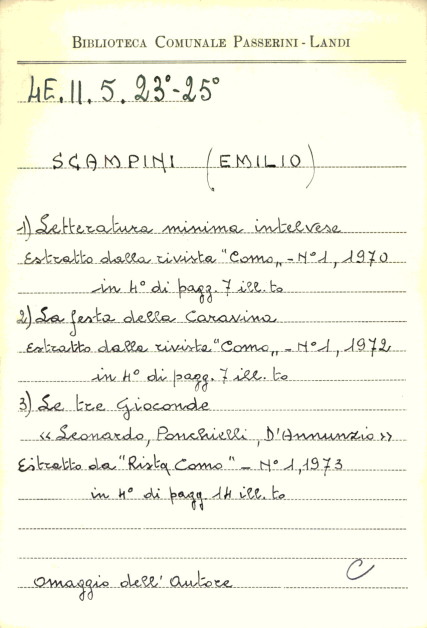 BIBLIOTECA COMUNALE PASSERINI - LANDI
4E.II.5.23°-25°
SCAMPINI (EMILIO)
1) Letteratura minima intelvese
Estratto dalla rivista "Como„ - N° 1, 1970
in 4° di pagg. 7 ill. to
2) La festa della Caravina
Estratto dalla rivista "Como„ - N° 1, 1972
in 4° di pagg. 7 ill. to
3) Le tre Gioconde
«Leonardo, Ponchielli, D'Annunzio»
Estratto da "Rista Como" - N° 1, 1973
in 4° di pagg. 14 ill. to
Omaggio dell'Autore
C